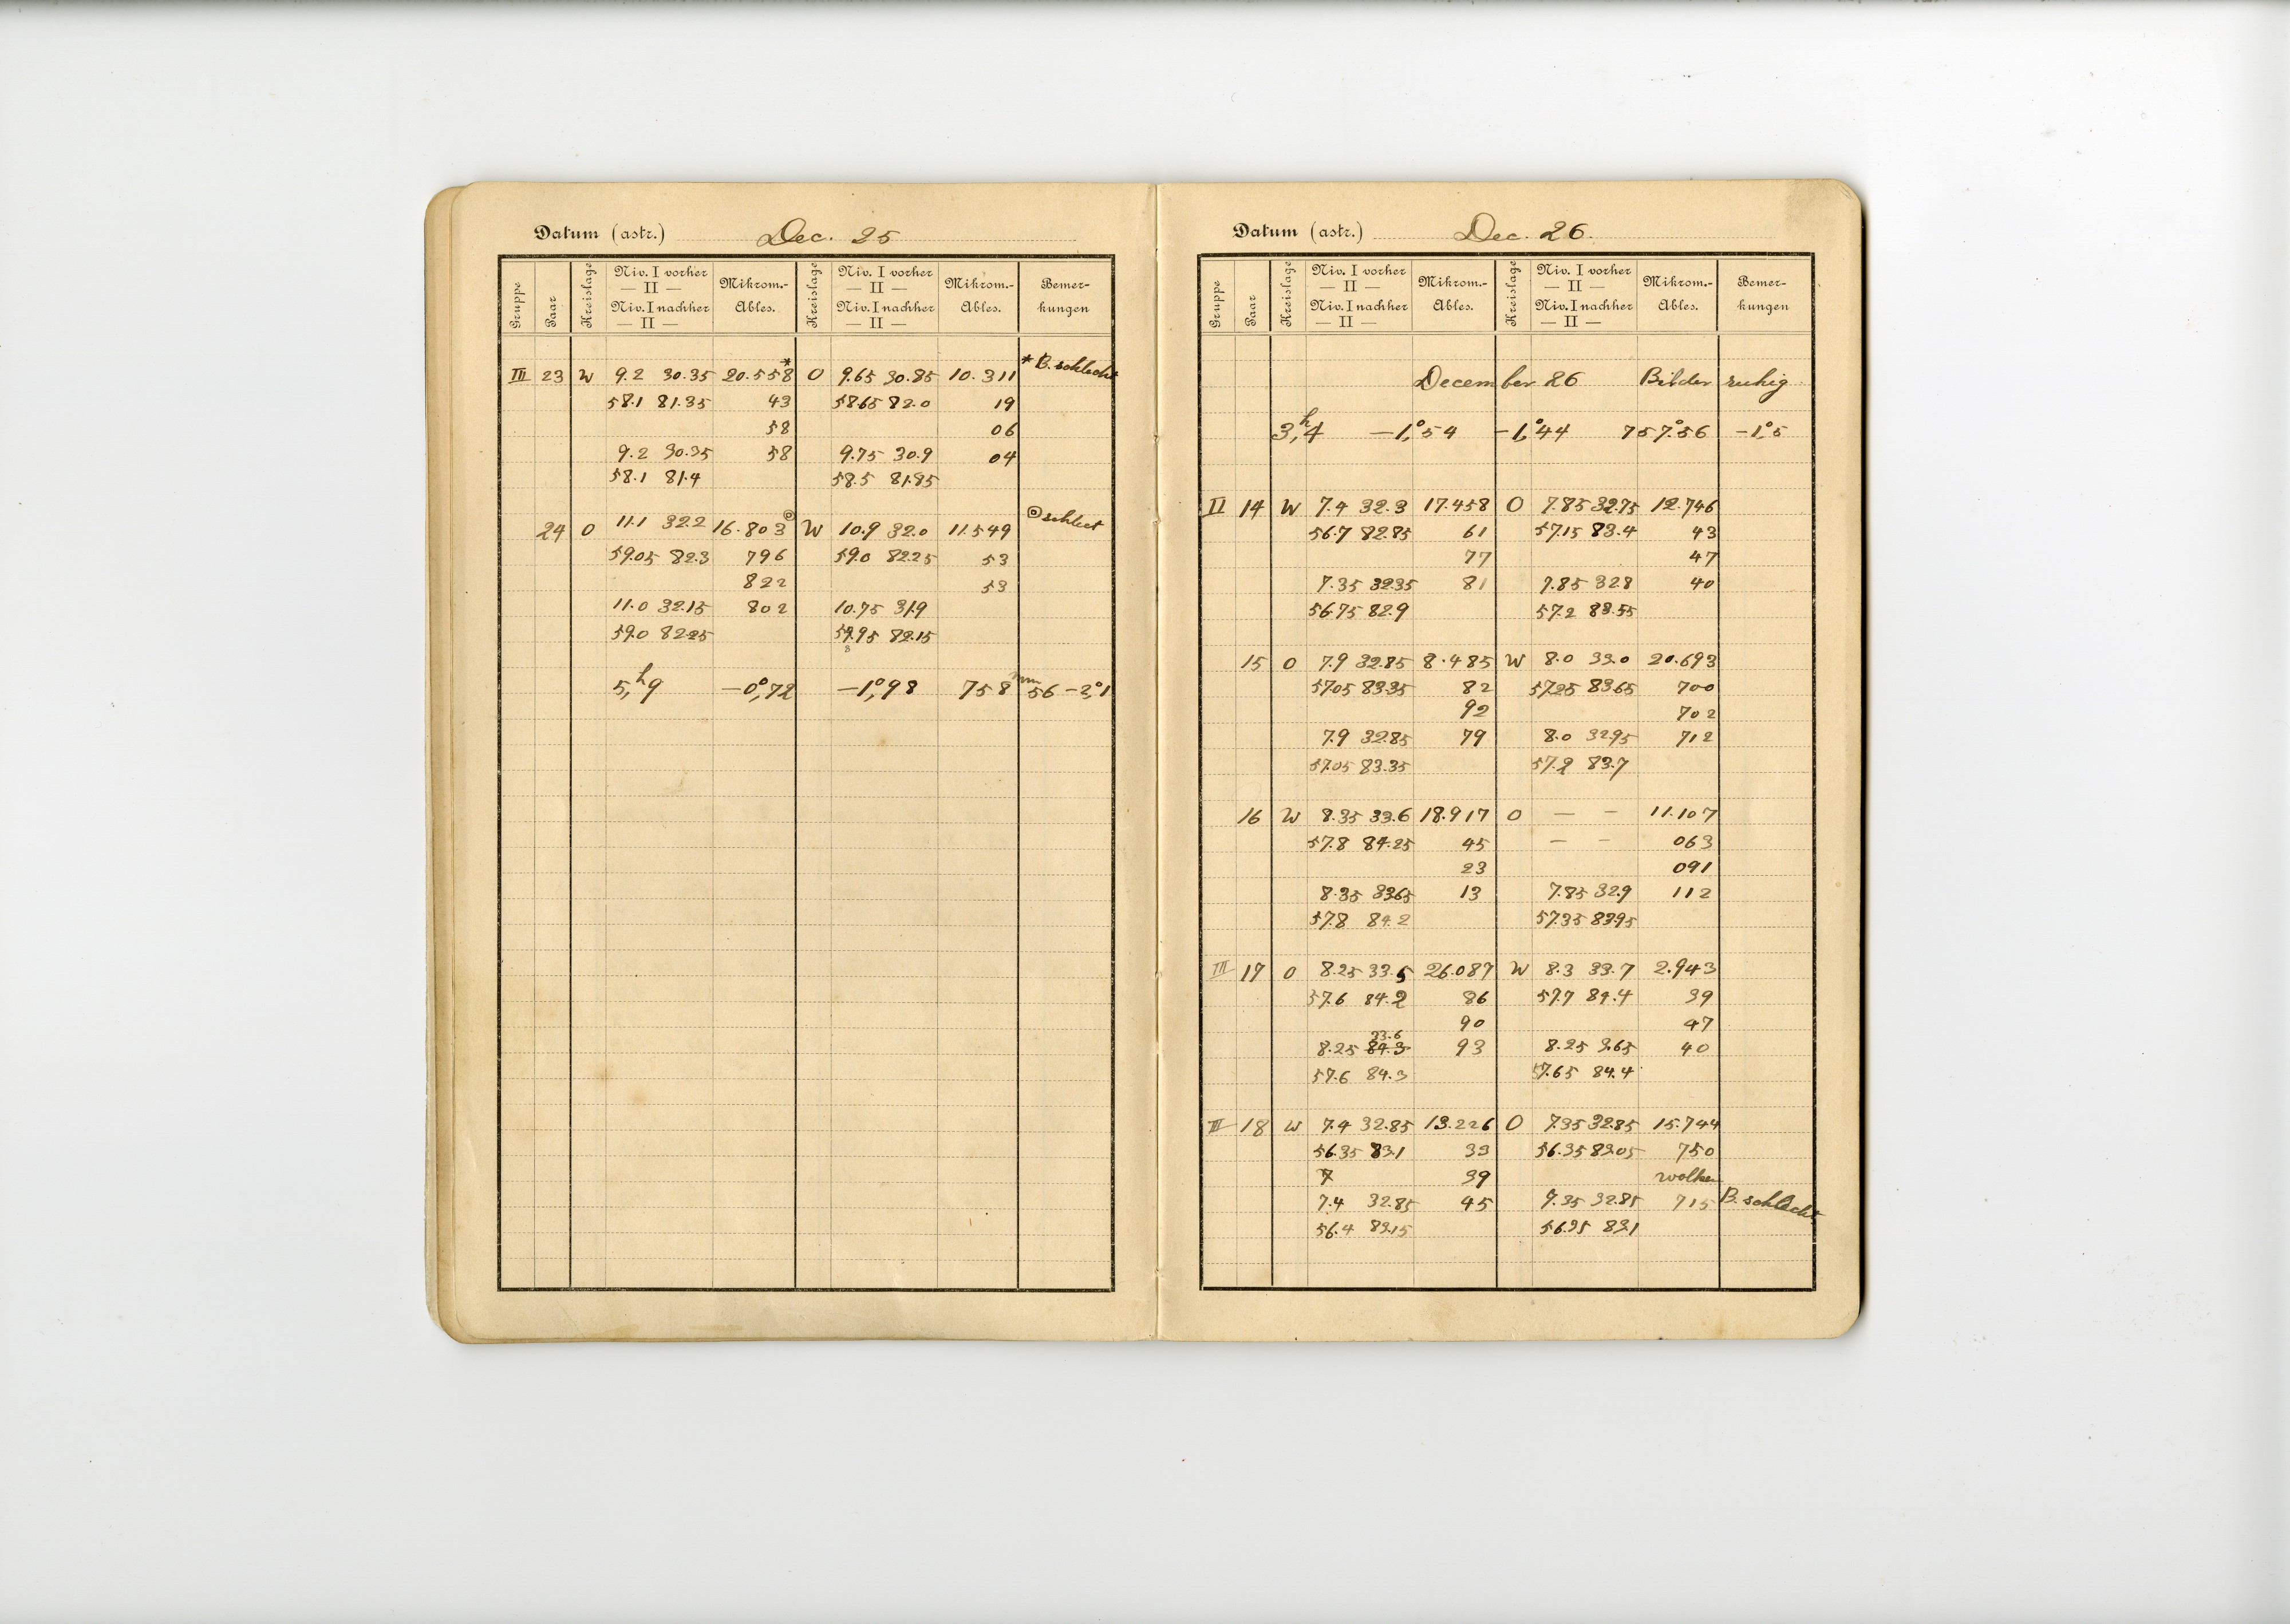 Datum (astr.) Dec. 25
Gruppe Paar Kreislage Niv. I vorher Mikrom.- Kreislage Niv. I vorher Mikrom.- Bemer-
— II — — II —
Niv. I nachher Ables. Niv. I nachher Ables. kungen
— II — — II —
III 23 W 9.2 30.35 20.558* O 9.65 30.85 10.311 * B. schlecht
58.1 81.35 43 58.65 82.0 19
58 06
9.2 30.35 58 9.75 30.9 04
58.1 81.4 58.5 81.95
24 O 11.1 32.2 16.803⊙ W 10.9 32.0 11.549 ⊙ schlect
59.05 82.3 796 59.0 82.25 53
822 53
11.0 32.15 802 10.75 31.9
59.0 82.25 59.95 82.15
8
5,h9 −0,°72 −1,°98 758mm56 −2,°1
Datum (astr.) Dec. 26.
Gruppe Paar Kreislage Niv. I vorher Mikrom.- Kreislage Niv. I vorher Mikrom.- Bemer-
— II — — II —
Niv. I nachher Ables. Niv. I nachher Ables. kungen
— II — — II —
December 26 Bilder ruhig
3,h4 −1,°54 −1,°44 757.°56 −1,°5
II 14 W 7.4 32.3 17.458 O 7.85 32.75 12.746
56.7 82.85 61 57.15 83.4 43
77 47
7.35 32.35 81 7.85 32.8 40
56.75 82.9 57.2 83.55
15 O 7.9 32.85 8.485 W 8.0 33.0 20.693
57.05 83.35 82 57.25 83.65 700
92 702
7.9 32.85 79 8.0 32.95 712
57.05 83.35 57.2 83.7
16 W 8.35 33.6 18.917 O — – 11.107
57.8 84.25 45 — – 063
23 091
8.35 33.65 13 7.85 32.9 112
57.8 84.2 57.35 83.95
III 17 O 8.25 33.5 26.087 W 8.3 33.7 2.943
57.6 84.2 86 57.7 84.4 39
90 47
33.6
8.25 84.3 93 8.25 3.65 40
57.6 84.3 57.65 84.4
III 18 W 7.4 32.85 13.226 O 7.35 32.85 15.744
56.35 83.1 33 56.35 83.05 750
7 39 wolken
7.4 32.85 45 7.35 32.85 715 B. schlecht
56.4 83.15 56.35 83.1